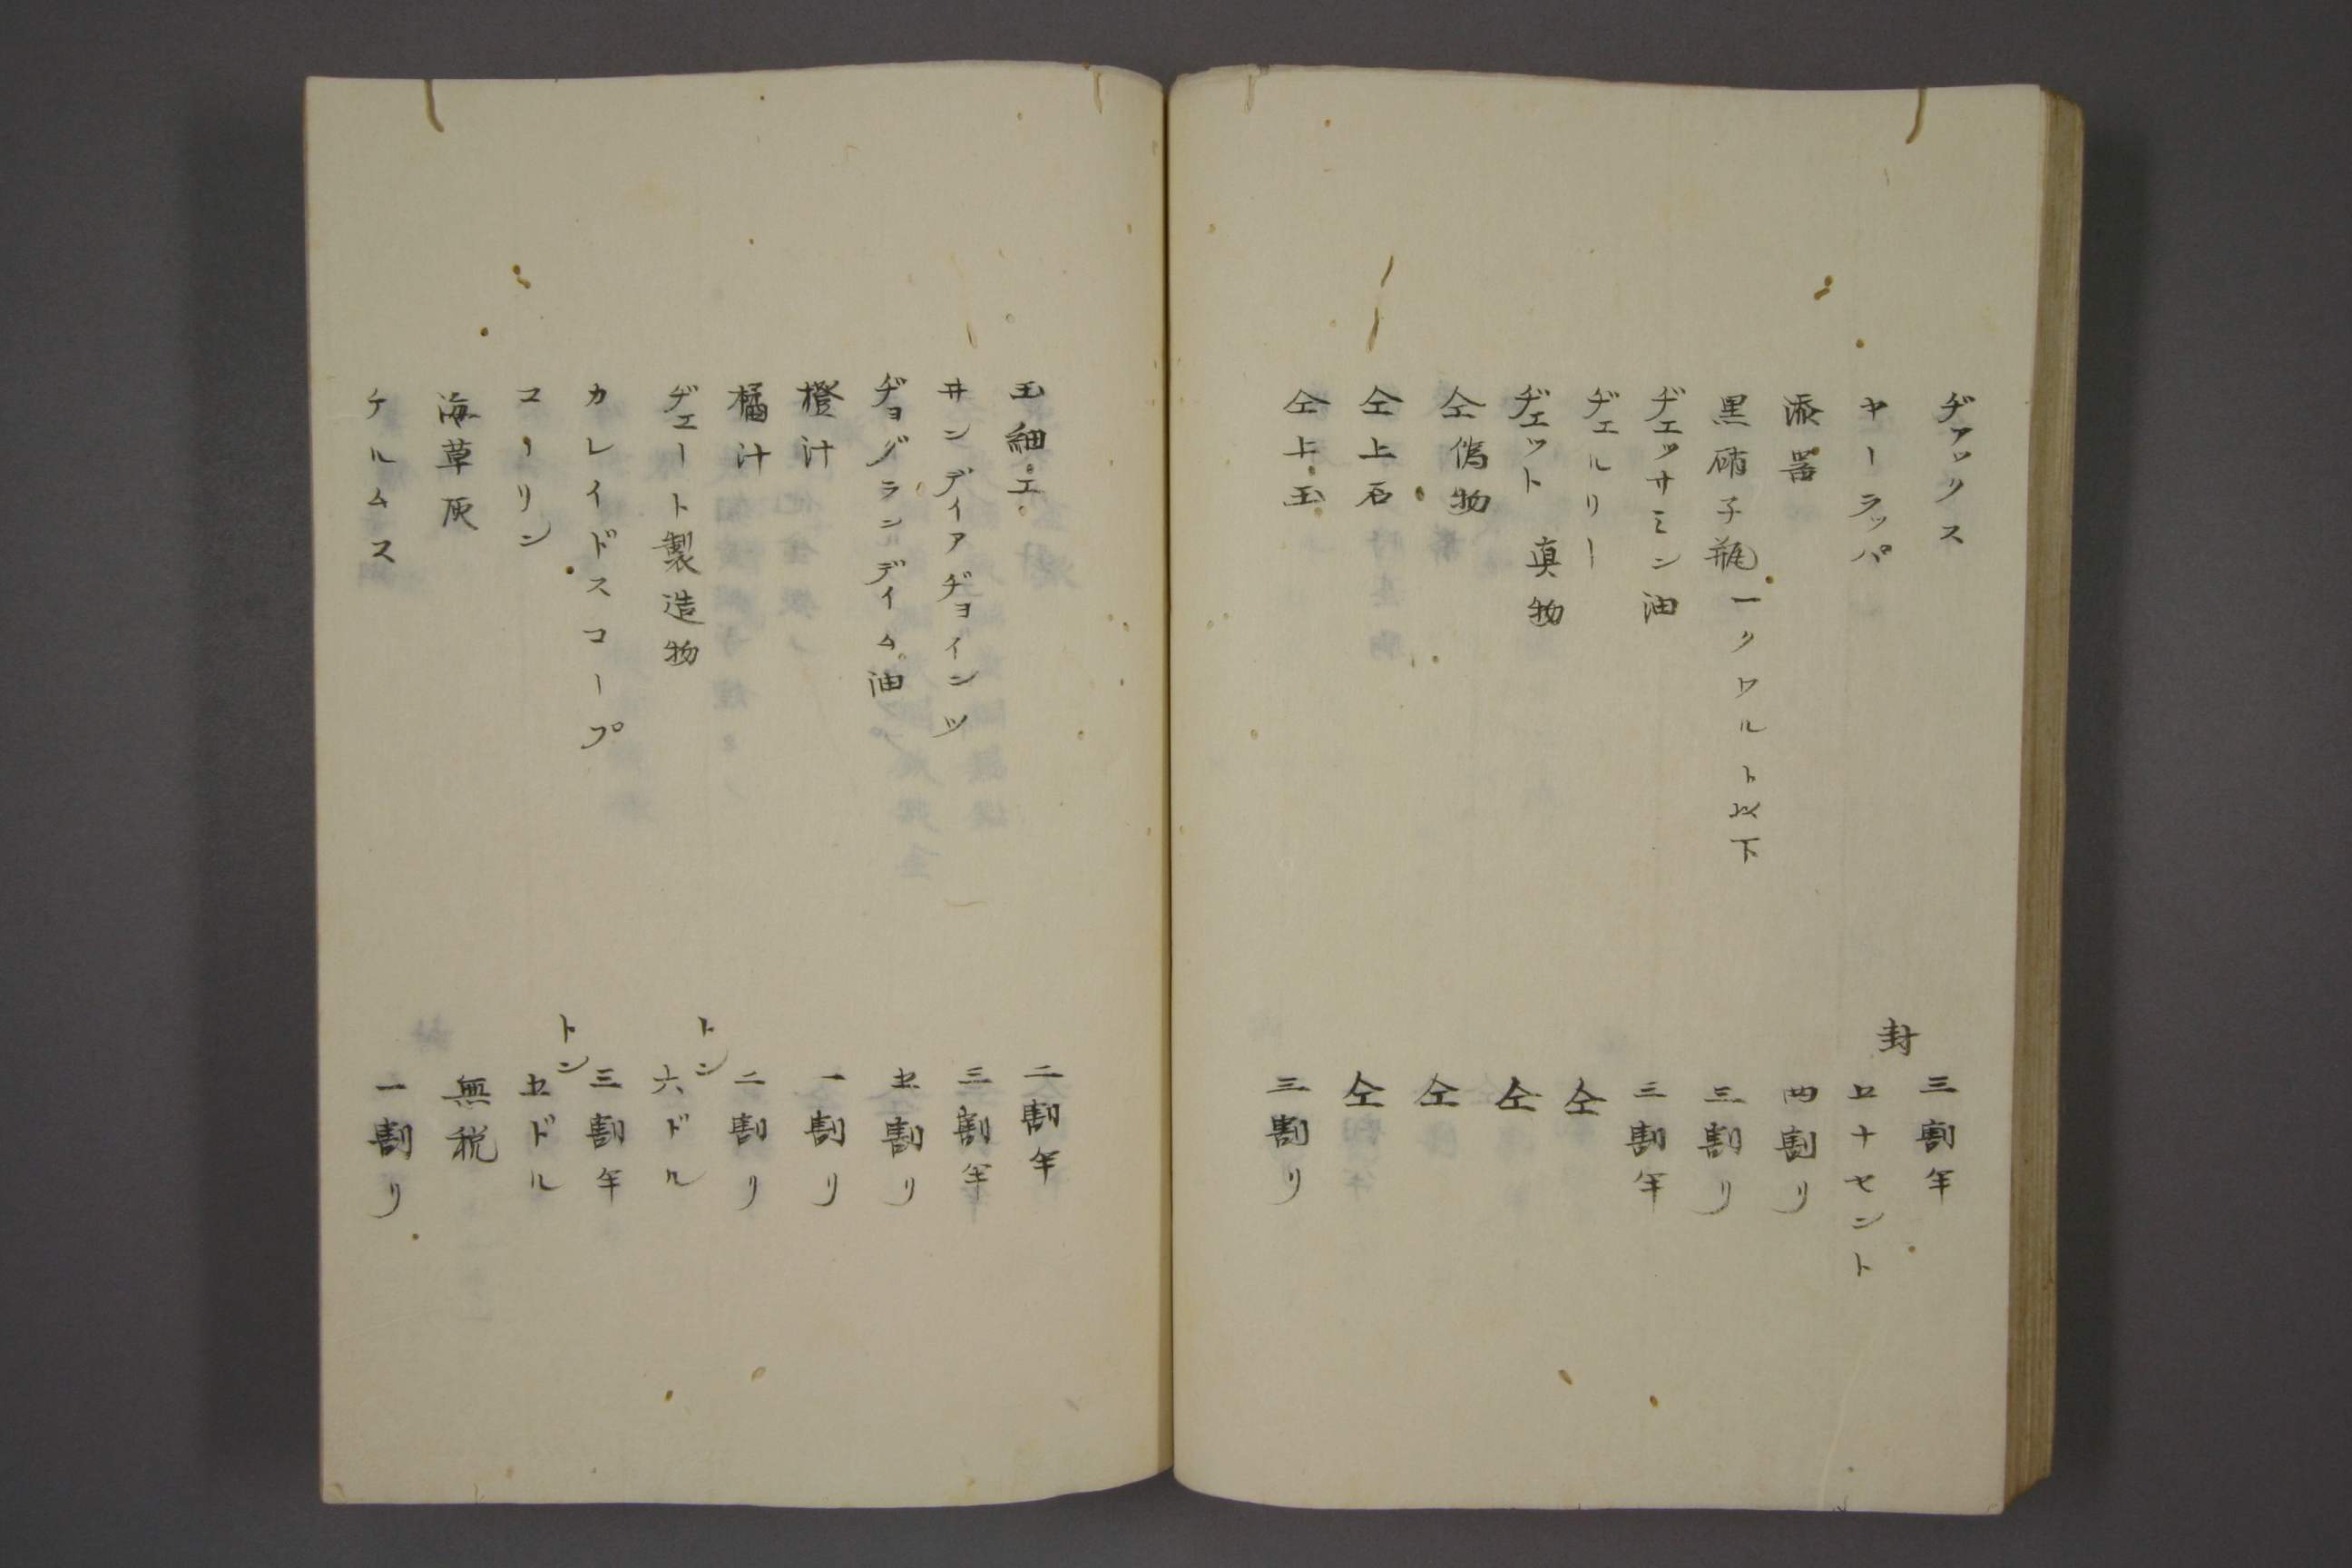 ヂァックス 三割半
ヤーラッパ 封五十セント
漆器 四割リ
黒硝子瓶一クワルト以下 三割リ
ヂェッサミン油 三割半
ヂェルリー 仝
ヂェット 真物 仝
仝偽物 仝
仝上石 仝
仝上玉 三割リ
玉細工 二割半
ヰンディアヂョインツ 三割半
ヂョグランルディム油 五割リ
橙汁 一割リ
橘汁 二割リ
ヂェート製造物 トン六ドル
カレイドスコープ 三割半
コーリン トン五ドル
海草灰 無税
ケルムス 一割リ